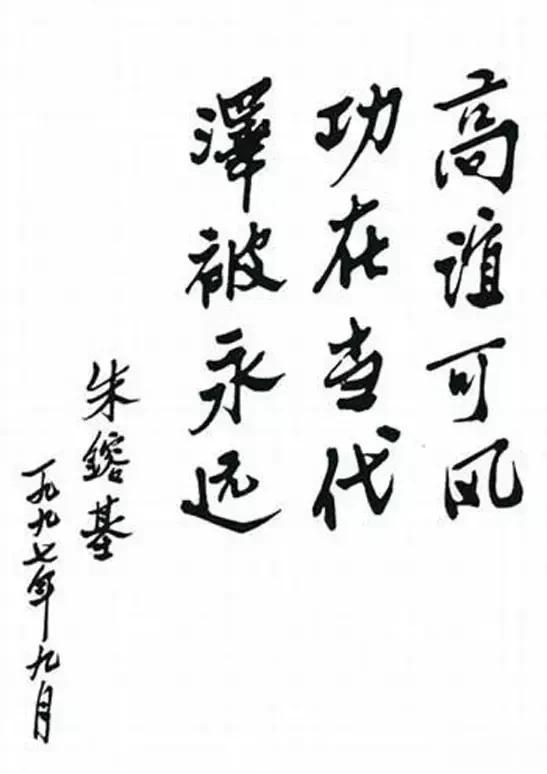 高谊可风
功在当代
泽被永远
朱鎔基
一九九七年九月